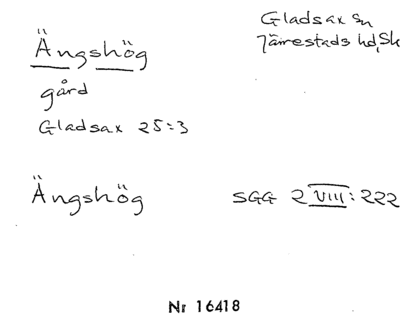 Ängshög
Gladsax sn
Järrestads hd, Sk
gård
Gladsax 25:3
Ängshög
SGG 2 VIII: 222
Nr 16418